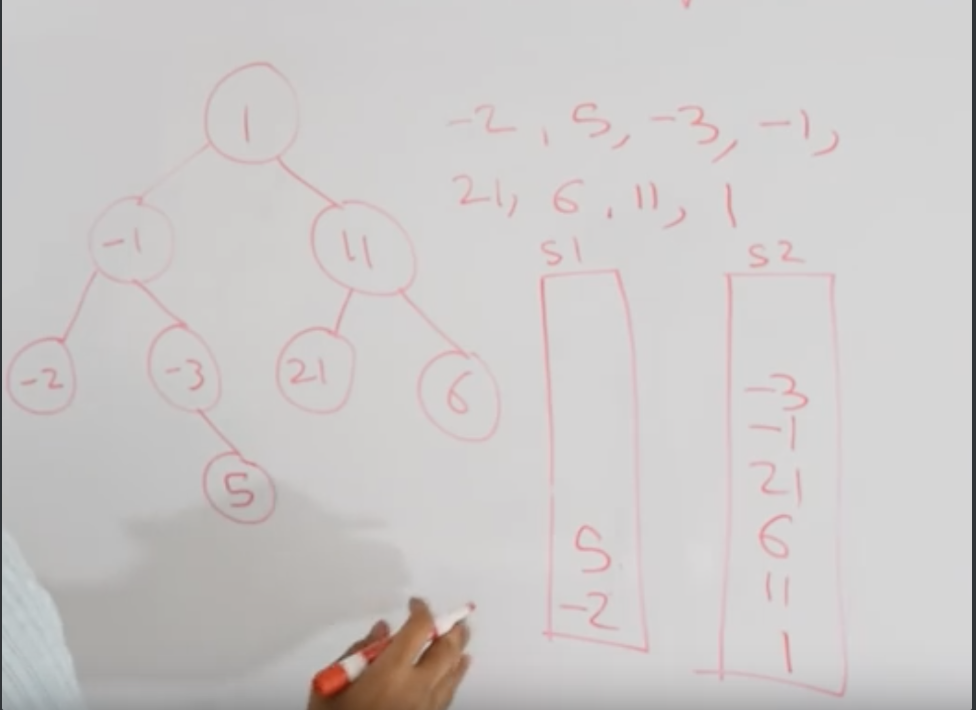 1
-1
11
-2
-3
21
6
5
-2, 5, -3, -1,
21, 6, 11, 1
S1
5
-2
S2
-3
-1
21
6
11
1